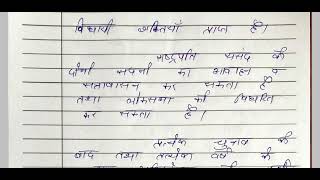 विधायी शक्तियाँ प्राप्त है।
राष्ट्रपति संसद के
दोनों सदनों का आवाहन व
सत्रावसान कर सकता है
तथा लोकसभा को विघटित
कर सकता है।
प्रत्येक चुनाव के
बाद तथा प्रत्येक वर्ष के